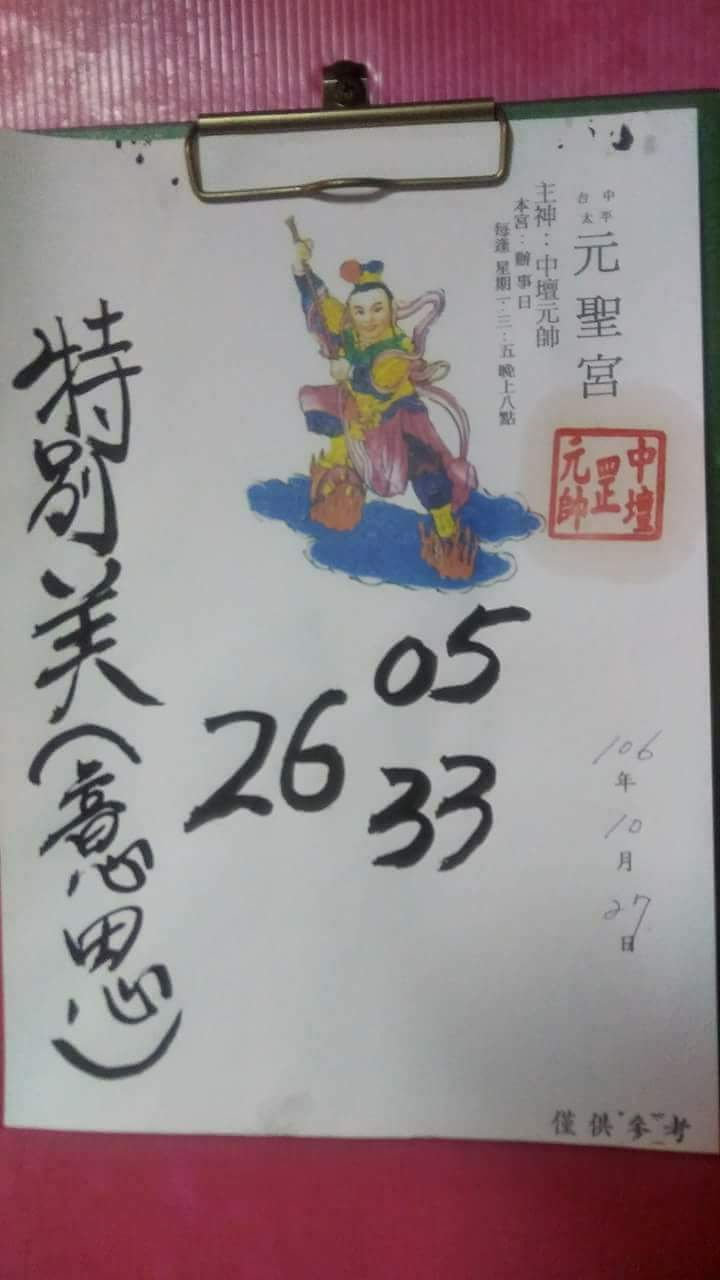 台中
太平
元聖宮
主神：中壇元帥
本宮：辦事日
每逢星期一．三．五晚上八點
中壇
罡
元帥
106年10月27日
05
26
33
特別美(意思)
僅供參考